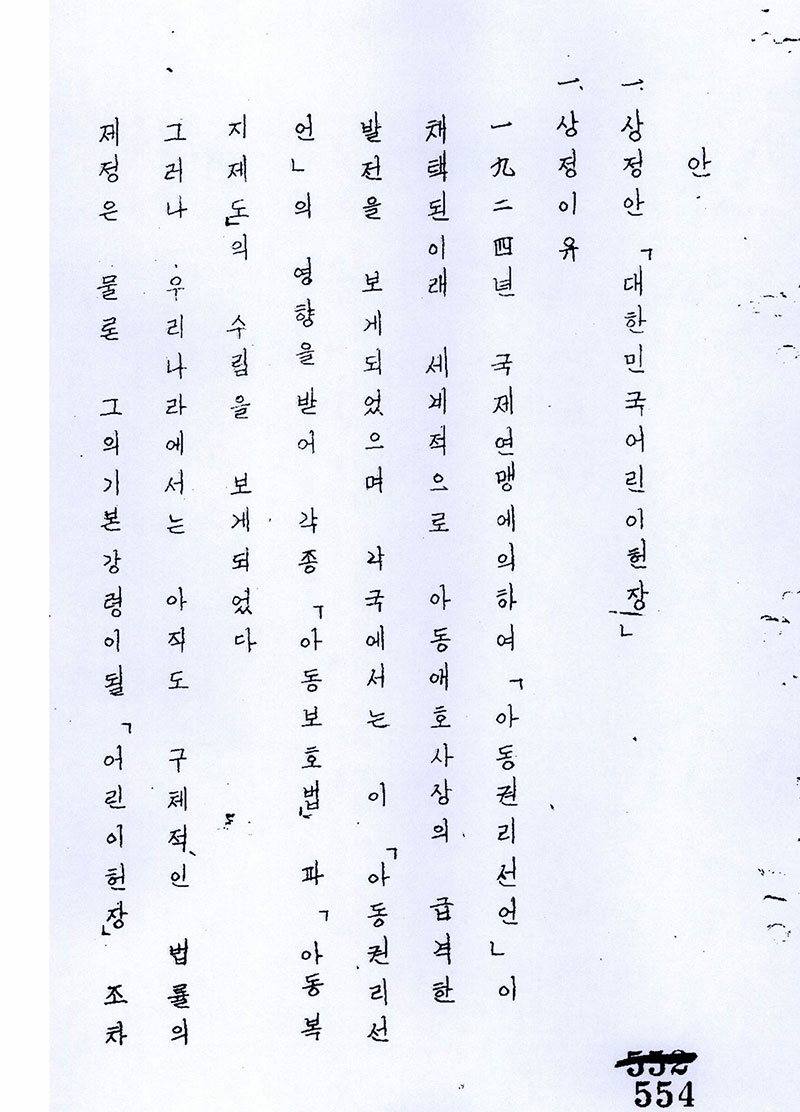 안
一. 상정안 「대한민국어린이헌장」
一. 상정이유
一九二四년 국제연맹에의하여 「아동권리선언」이
채택된이래 세계적으로 아동애호사장의 급격한
발전을 보게되었으며 각국에서는 이 「아동권리선
언」의 영향을받어 각종 「아동보호법」 파 「아동복
지제도」의 수립을 보게되었다
그러나 우리나라에서는 아직도 구체적인 법률의
제정은 물론 그의기본강령이될 「어린이헌장」 조차
552
554